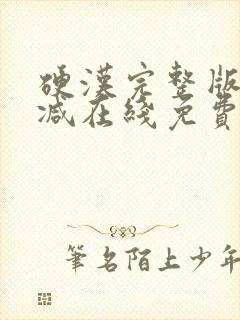 硬漢完整版
減在綫免費
筆名陌上少年